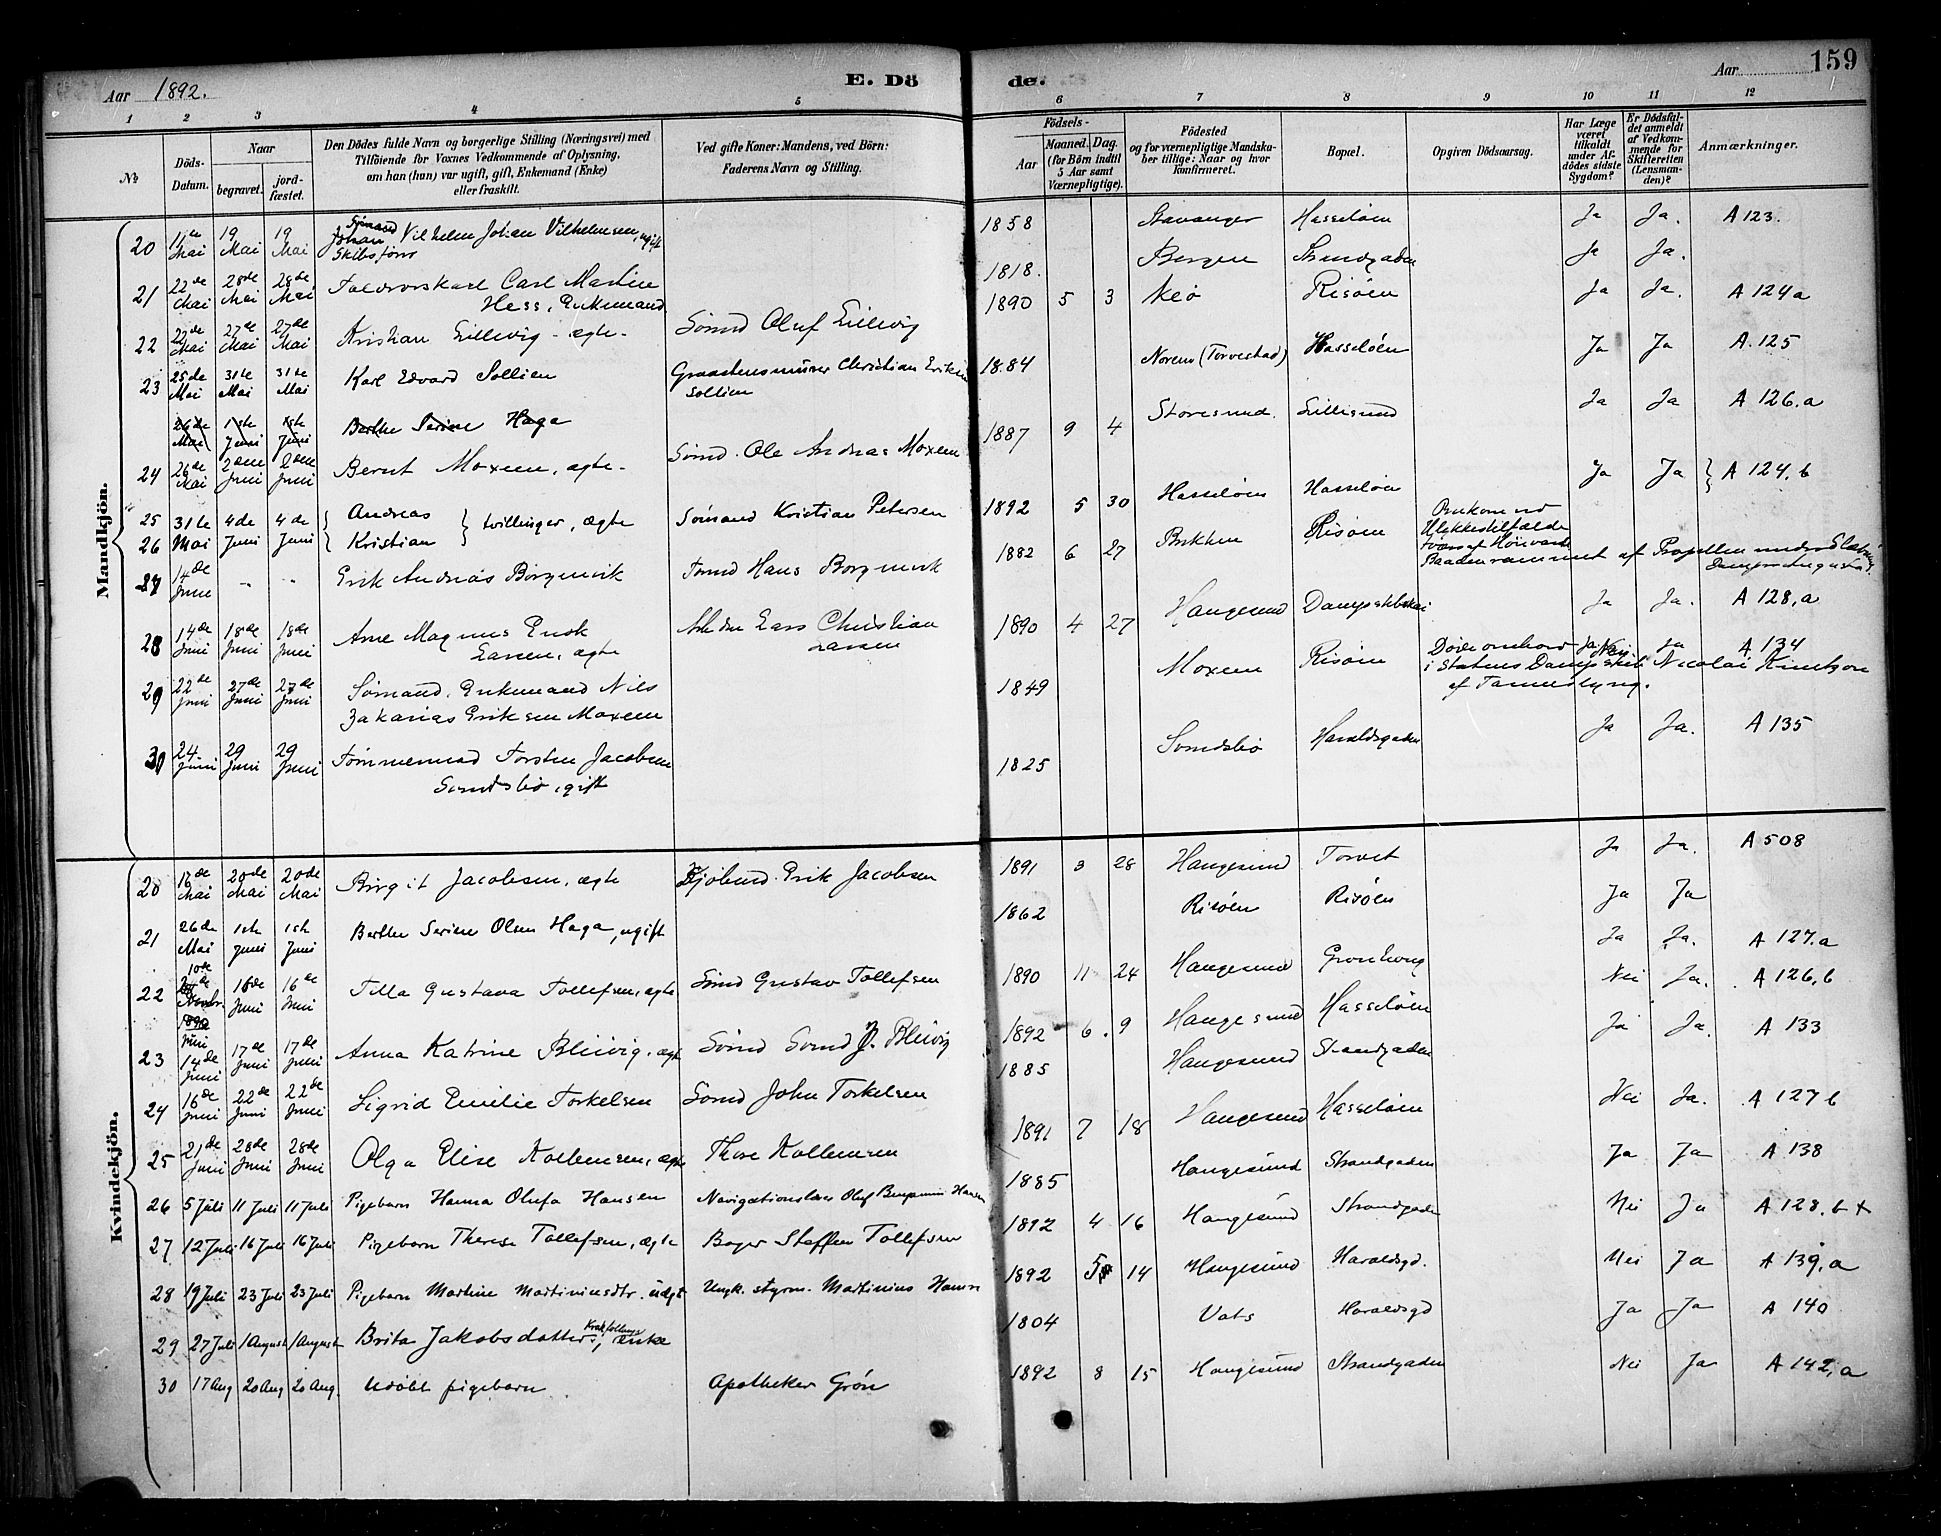 Aar 1892.
E. Dö
de.
Aar
159
1 2 3 4 5 6 7 8 9 10 11 12
№
Döds-Datum.
Naar
begravet.
jord-fæstet.
Den Dödes fulde Navn og borgerlige Stilling (Næringsvei) med
Tilföiende for Voxnes Vedkommende af Oplysning,
om han (hun) var ugift, gift, Enkemand (Enke)
eller fraskilt.
Ved gifte Koner: Mandens, ved Börn:
Faderens Navn og Stilling.
Födsels-
Aar
Maaned. Dag.
(for Börn indtil
5 Aar samt
Værnepligtige).
Födested
og for værnepligtige Mandska-
ber tillige: Naar og hvor
konfirmeret.
Bopæl.
Opgiven Dödsaarsag.
Har Læge
været
tilkaldt
under Af-
dödes sidste
Sygdom?
Er Dödsfal-
det anmeldt
af Vedkom-
mende for
Skifteretten
(Lensman-
den)?
Anmærkninger.
Mandkjön.
20 Mai 19 Mai 19 Mai Sömand Johan Vilhelm Johan Vilhelmsen, ugift 1858 Stavanger Hasselöen Ja Ja. A 123.
21 22de Mai 28de Mai 28de Mai Carl Martin 1818. Bergen Strandgaden Ja Ja.
Hess, Enkemand
22 22de Mai 27de Mai 27de Mai Kristian Lillevig - ægte - Sömd Oluf Lillevig 1890 5 3 Risöen Ja Ja. A 124a
23 25de Mai 31te Mai 31te Mai Karl Edvard Sollien Graastensmurer Christian Eriksen 1884 (Torvestad) Hasselöen Ja Ja A. 125
Sollien
26de Mai 1ste Juni 1ste Juni Berthe Serine Haga
24 26de Mai 2den Juni 2den Juni Bernt Moxem, ægte - Sömd. Ole Andreas Moxem 1887 9 4 Storesund. Lillesund Ja Ja A 126.a
25 31te 4de 4de Andreas } tvillinger, ægte Sömand Kristian Petersen 1892 5 30 Hasselöen Hasselöen Ja Ja } A 124.b
26 Mai Juni Juni Kristian
27 14de Juni " " Erik Andreas Borgenvik Hans Borgenvik 1882 6 27 Risöen Omkom ved
Ulykkestilfælde
af Propellen under
28 14de Juni 18de Juni 18de Juni Arne Magnus Enok Lars Christian 1890 4 27 Haugesund Dampskibskai Ja Ja. A 128,a
Larsen, ægte Larsen
29 22de Juni 27de Juni 27de Juni Sömand, Enkemand Nils 1849 Moxem Risöen Döde ombord Ja Nei. Ja A 134
Zakarias Eriksen Moxem i Statens Dampskib Nicolai Knutzon
30 24 Juni 29 Juni 29 Juni Tömmermand Torsten Jacobsen 1825 Haraldsgaden Ja Ja. A 135
gift
Kvindekjön.
20 Mai 20de Mai 20de Mai Birgit Jacobsen, ægte Kjöbmd. Erik Jacobsen 1891 3 28 Haugesund Torvet Ja Ja. A 508
21 26de Mai 1ste Juni 1ste Juni Berthe Serine Olsen Haga, ugift 1862 Risöen Risöen Ja Ja
22 10de 1890 Juni 16de Juni 16de Juni Tilla Gustava Tollefsen, ægte Sömd Gustav Tollefsen 1890 11 24 Haugesund Ja Ja. A 127.a
23 14de Juni 17de Juni 17de Juni Anna Katrine Bleivig, ægte Sömd J. Bleivig 1892 6. 9 Haugesund Hasselöen Nei Ja. A 126,b
24 16de Juni 22de Juni 22de Juni Sigrid Emilie Torkelsen Sömd John Torkelsen 1885 Haugesund Strandgaden Ja Ja. A 133
25 21de Juni 28de Juni 28de Juni Olga Elise Kolbensen, ægte Thore Kolbensen 1891 7 18 Haugesund Hasselöen Nei Ja. A 127b
26 5 Juli 11 Juli 11 Juli Pigebarn Hanna Olufa Hansen Navigationslærer Oluf Benjamin Hansen 1885 Haugesund Strandgaden Ja Ja A 138
27 12 Juli 16 Juli 16 Juli Pigebarn Therese Tollefsen, ægte Bager Steffen Tollefsen 1892 4 16 Haugesund Strandgaden Nei Ja A 128.b +
28 19 Juli 23 Juli 23 Juli Pigebarn Martine Martiniusdtr. uægt Ungk. styrm. Martinius Hansen 1892 5 14 Haugesund Haraldsgd. Nei Ja A 139,a
29 27 Juli 1 August 1 August Brita Jakobsdatter, enke 1804 Vats Haraldsgd Ja Ja A 140
30 17 Aug 20 Aug 20 Aug. Udöbt pigebarn Apotheker Grön 1892 8 15 Haugesund Strandgaden Nei Ja A 142,a